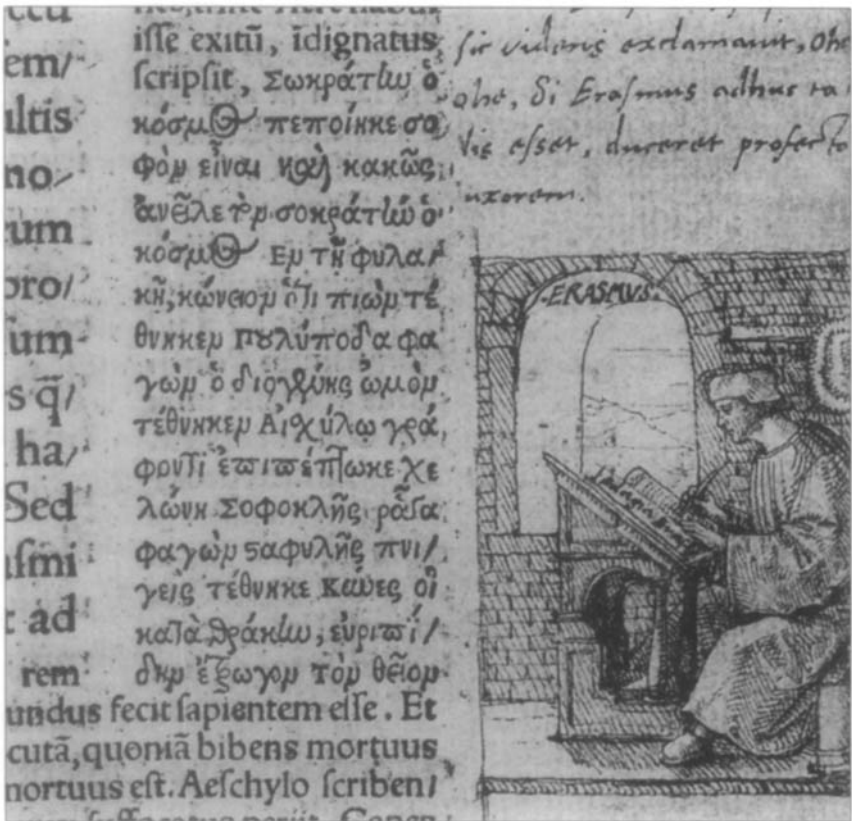 ccu
em/
ultis
no/
rum
pro/
sum
s q̃/
ha/
Sed
ſmi
t ad
rem
iſſe exitũ, ĩdignatus
ſcripſit, Σωκράτην ὁ
κόσμος πεποίηκε σο
φὸν εἶναι καὶ κακῶς
ἀνεῖλε τὸν σοκράτην ὁ
κόσμος Εν τῇ φυλα/
κῇ, κώνειον ὅτι πιὼν τέ
θνηκεν Πουλύποδα φα
γὼν ὁ διογένης ὠμὸν
τέθνηκεν Αἰσχύλῳ γρά
φοντι ἐπιπέπτωκε χε
λώνη Σοφοκλῆς ῥᾶγα
φαγὼν σταφυλῆς πνι/
γεὶς τέθνηκε Κύνες οἱ
κατὰ θράκην, ἐυριπί/
δην ἔτρωγον τὸν θεῖον
undus fecit ſapientem eſſe. Et
cutã, quoniã bibens mortuus
mortuus eſt. Aeſchylo ſcriben/
sic videris exclamauit, Ohe
ohe, Si Erasmus adhuc ta
lis esset, duceret profecto
uxorem.
ERASMVS